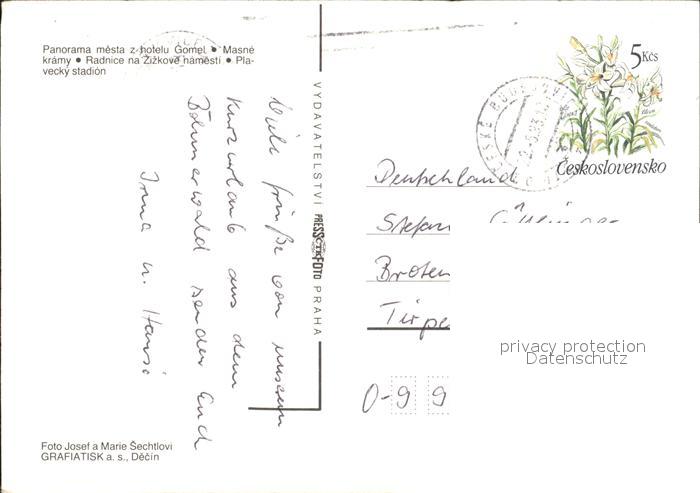 Panorama města z hotelu Gomel • Masné
krámy • Radnice na Žižkově náměstí • Pla-
vecký stadión
Viele Grüße von unserem
Kurzurlaub aus dem
Böhmerwald senden Euch
Irma u. Hansi
VYDAVATELSTVÍ PRESSFOTO PRAHA
ČTK
5 Kčs
Československo
ČESKÉ BUDĚJOVICE
Deutschland
Stefan
Broten
Tirpe
D-99
privacy protection
Datenschutz
Foto Josef a Marie Šechtlovi
GRAFIATISK a. s., Děčín